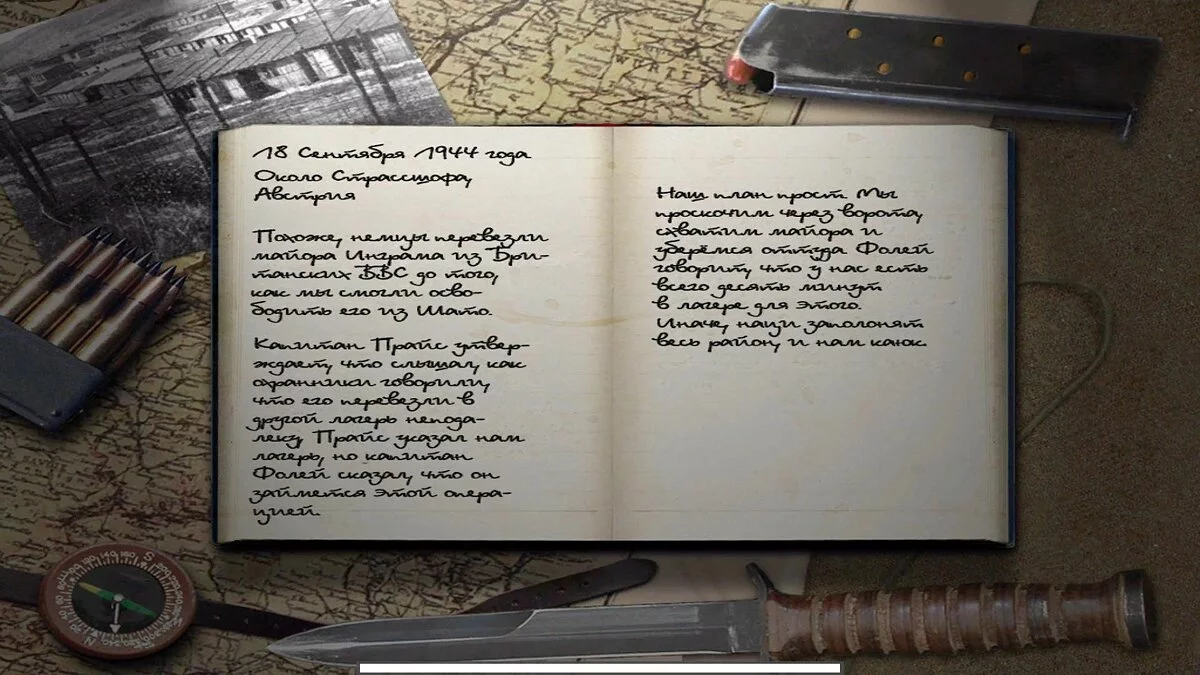 18 Сентября 1944 года
Около Страссшофа,
Австрия
Похоже, немцы перевезли
майора Инграма из Бри-
танских ВВС до того,
как мы смогли осво-
бодить его из Шато.
Капитан Прайс утвер-
ждает, что слышал, как
охранники говорили,
что его перевезли в
другой лагерь непода-
леку. Прайс указал нам
лагерь, но капитан
Фолей сказал, что он
займется этой опера-
цией.
Наш план прост. Мы
проскочим через ворота,
схватим майора и
уберёмся оттуда. Фолей
говорит, что у нас есть
всего десять минут
в лагере для этого.
Иначе, наци заполонят
весь район, и нам каюк.
S
N